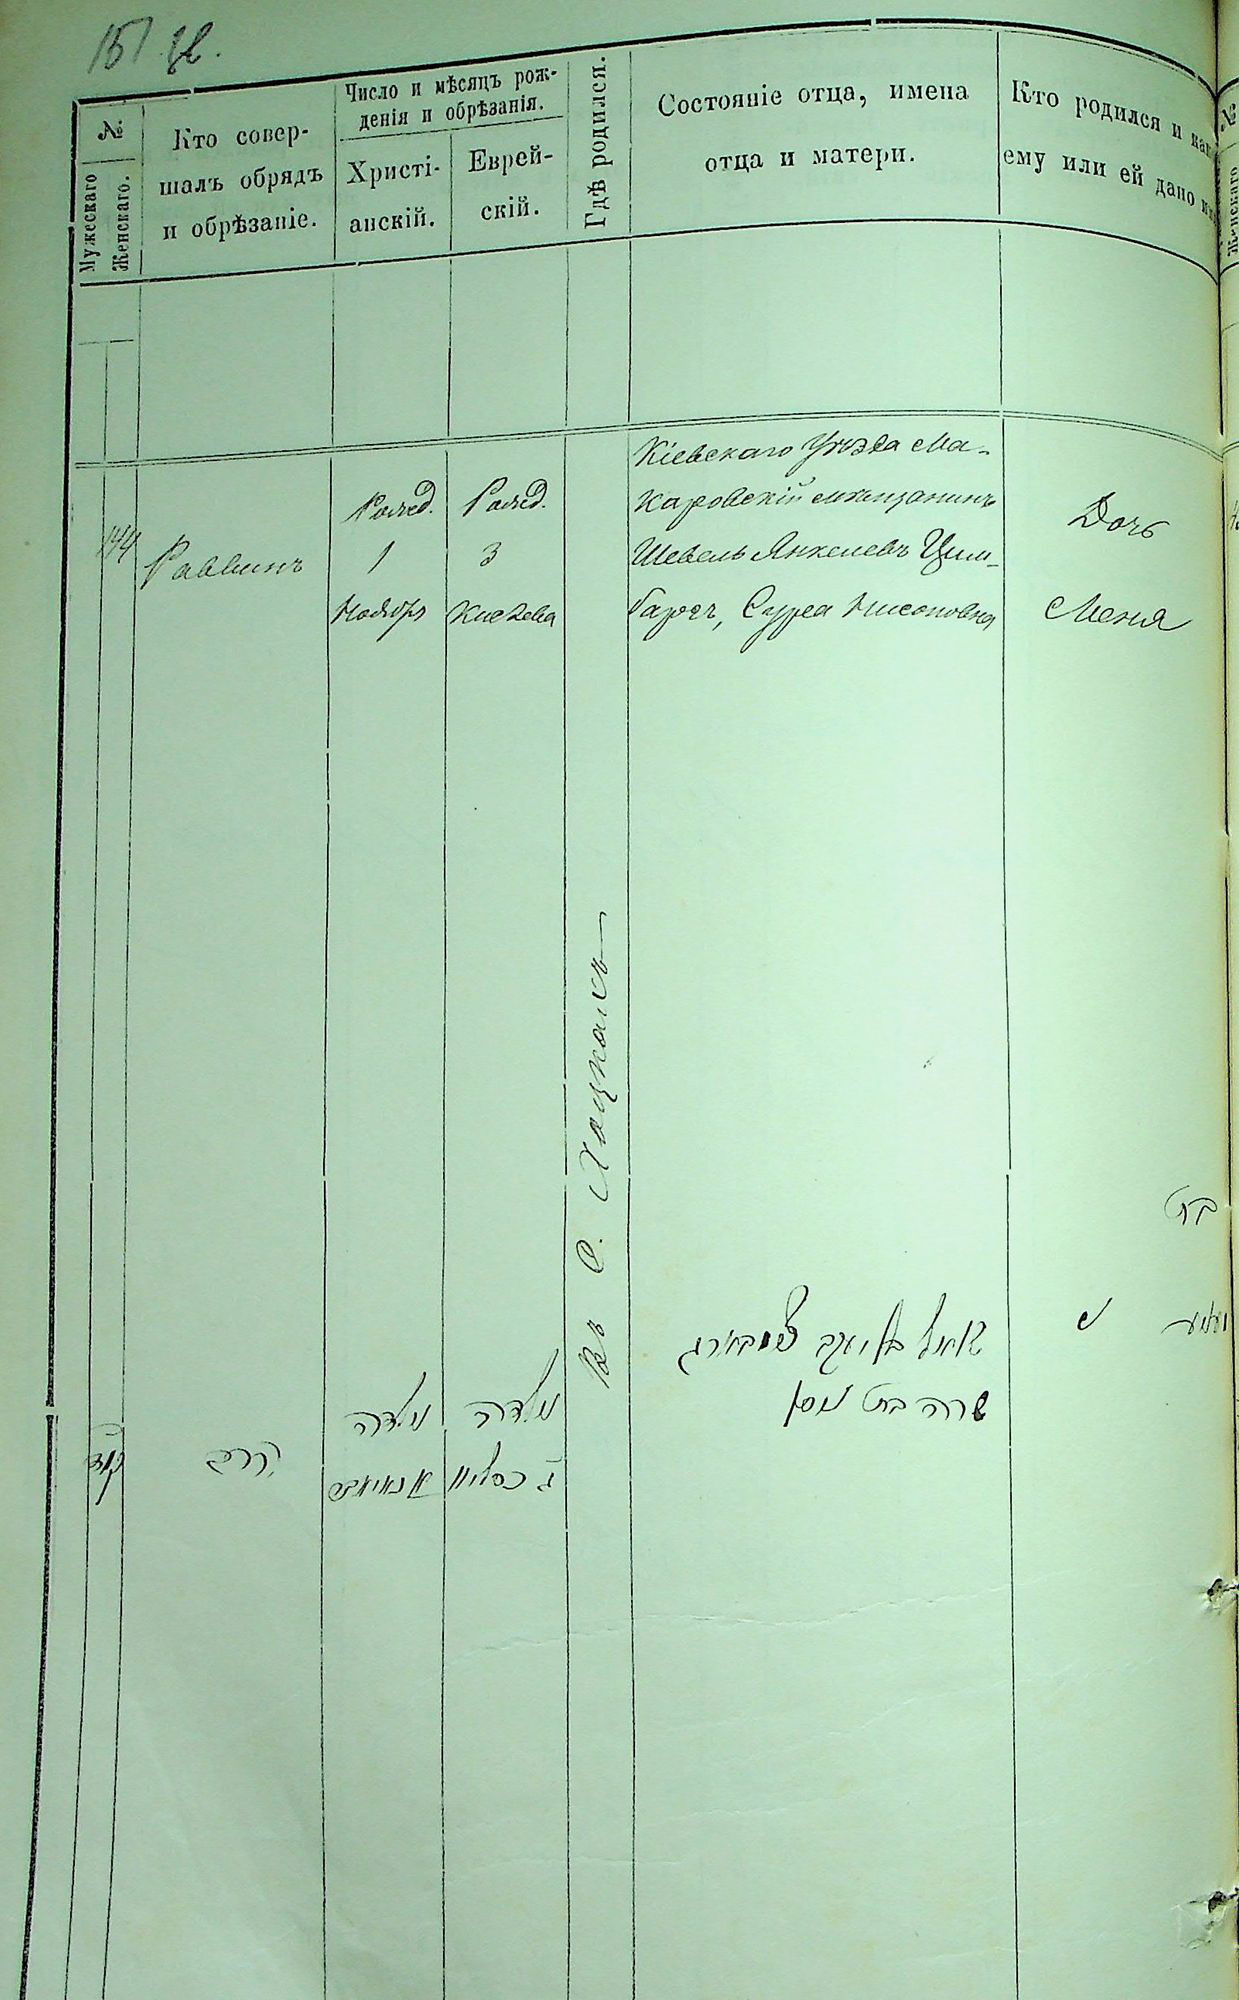 151
№
Мужескаго
Женскаго.
Кто совер-
шалъ обрядъ
и обрѣзаніе.
Число и мѣсяцъ рож-
денія и обрѣзанія.
Христі-
анскій.
Еврей-
скій.
Гдѣ родился.
Состояніе отца, имена
отца и матери.
Кто родился и как
ему или ей дано
144
Раввинъ
Рожд.
1
Ноября
Рожд.
3
Кислева
Въ С.
Кіевскаго Уѣзда Ма-
каровскій мѣщанинъ
Шевель Янкелевъ Цим-
барг, Сура Нисоновна
Дочь
Меня
בת
שרה בת ניסן
נולדה
נולדה
ג כסליו